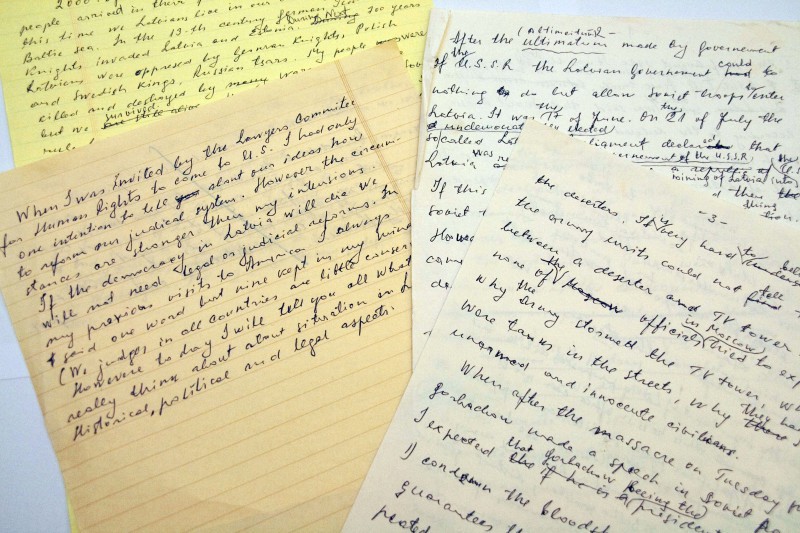 2000
people arrived in their
this time we Latvians live in our
Baltic sea. In the 13-th century German
Knights invaded Latvia and Estonia. During 700 years
Latvians were oppresed by German Knights, Polish
and Swedish Kings, Russian tsars. My people were
killed and destroyed by many
but we survived
When I was invited by the Lawyers Commitee
for Human Rights to come to U.S. I had only
one intention to tell you about our ideas how
to reform our judical system. However the circum-
stances are stronger then my intensions.
If the democracy in Latvia will die we
will not need legal or judicial reforms. In
my previous visits to America I always
said one word but nine kept in my mind
(We judges in all countries are little conser
However to day I will tell you all what
really think about about situation in
Historical, political and legal aspects.
(Altimeitum)
After the ultimatum made by government
of the U.S.S.R the Latvian Government could
nothing to do but allow Soviet troops enter
Latvia. It was the 17 of June. On the 21 of July the
socalled
Latvia
government of the U.S.S.R
joining of Latvia into
If this
Soviet
Howe
-3-
the deserters. It is very hard to
the army units could not tell
between a deserter and TV tower
none of the Moscow officials in Moscow tried to ex
why the army stormed the TV tower, wh
were tanks in the streets, why they ha
unarmed and innocente civilians.
When after the massacre on Tuesday
gorbachow made a speach in Soviet
I expected that gorbachow beeing the president
I condemn the bloodsh
guarantees
peated